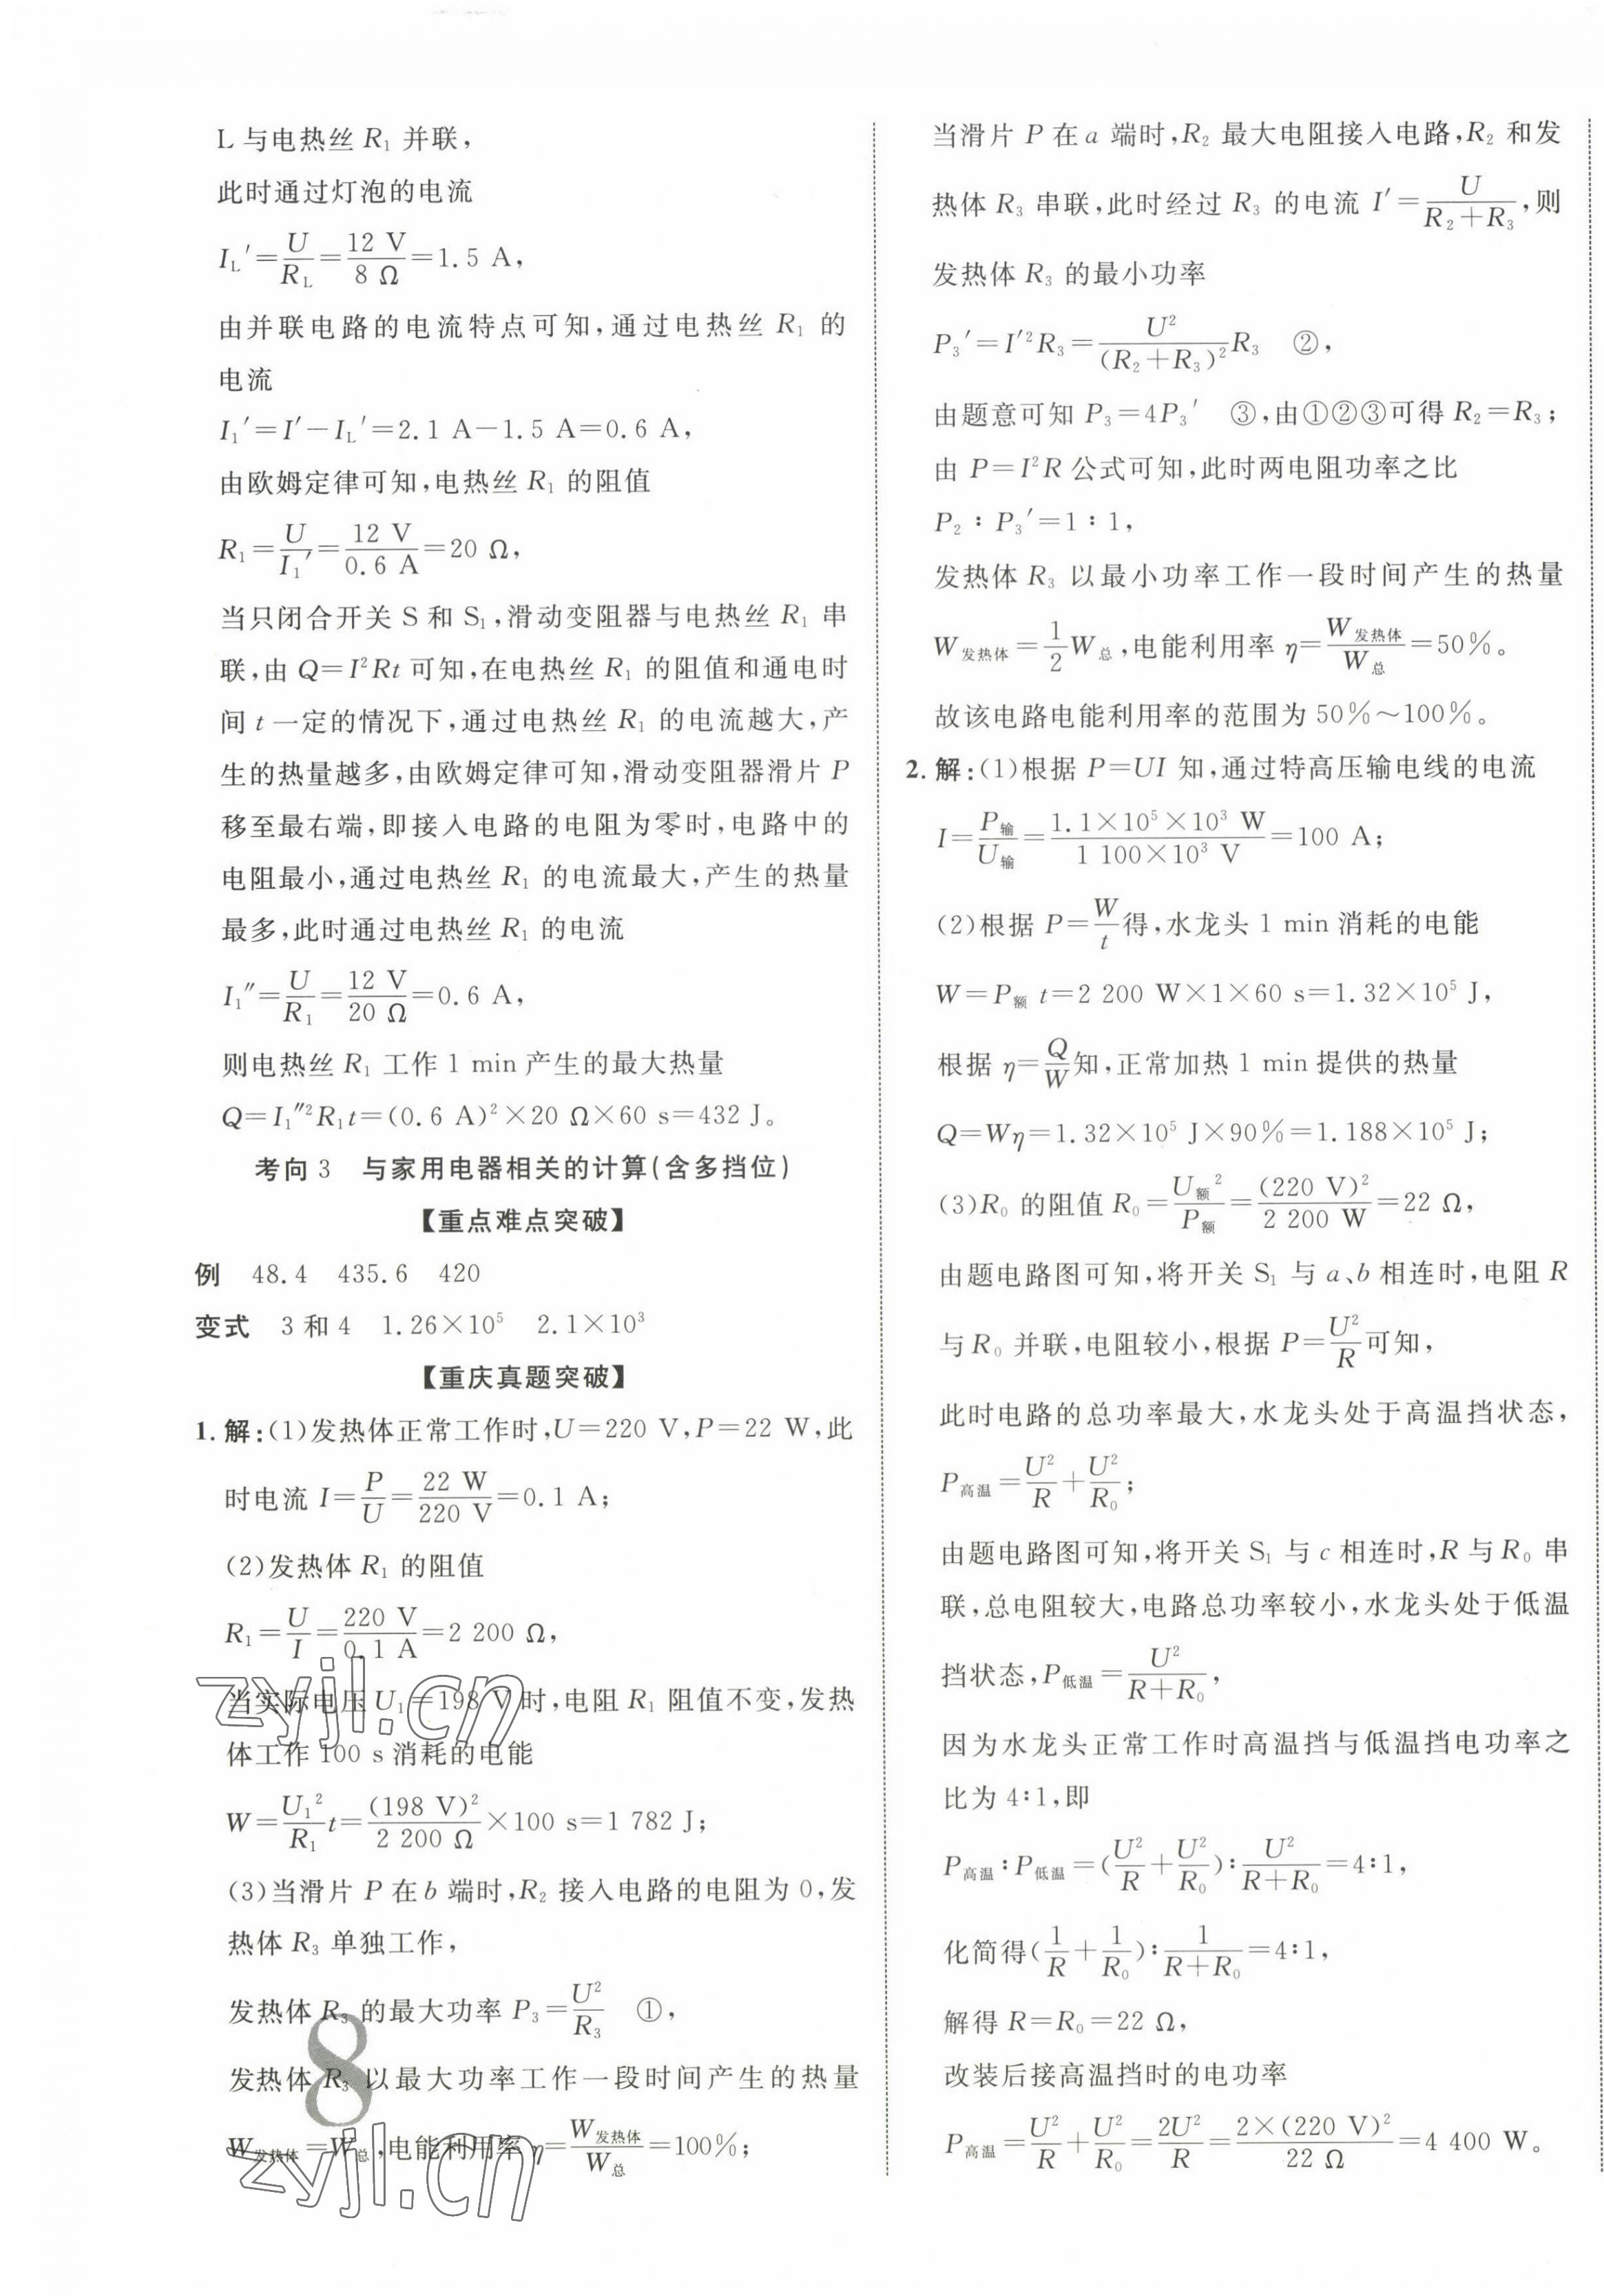 L 与电热丝 R₁ 并联，
此时通过灯泡的电流
I_L′=U/R_L=12 V/8 Ω=1.5 A，
由并联电路的电流特点可知，通过电热丝 R₁ 的
电流
I₁′=I′－I_L′=2.1 A－1.5 A=0.6 A，
由欧姆定律可知，电热丝 R₁ 的阻值
R₁=U/I₁′=12 V/0.6 A=20 Ω，
当只闭合开关 S 和 S₁，滑动变阻器与电热丝 R₁ 串
联，由 Q=I²Rt 可知，在电热丝 R₁ 的阻值和通电时
间 t 一定的情况下，通过电热丝 R₁ 的电流越大，产
生的热量越多，由欧姆定律可知，滑动变阻器滑片 P
移至最右端，即接入电路的电阻为零时，电路中的
电阻最小，通过电热丝 R₁ 的电流最大，产生的热量
最多，此时通过电热丝 R₁ 的电流
I₁″=U/R₁=12 V/20 Ω=0.6 A，
则电热丝 R₁ 工作 1 min 产生的最大热量
Q=I₁″²R₁t=(0.6 A)²×20 Ω×60 s=432 J。
考向 3 与家用电器相关的计算(含多挡位)
【重点难点突破】
例 48.4 435.6 420
变式 3 和 4 1.26×10⁵ 2.1×10³
【重庆真题突破】
1. 解：(1)发热体正常工作时，U=220 V，P=22 W，此
时电流 I=P/U=22 W/220 V=0.1 A；
(2)发热体 R₁ 的阻值
R₁=U/I=220 V/0.1 A=2 200 Ω，
当实际电压 U₁=198 V 时，电阻 R₁ 阻值不变，发热
体工作 100 s 消耗的电能
W=U₁²/R₁ t=(198 V)²/2 200 Ω×100 s=1 782 J；
(3)当滑片 P 在 b 端时，R₂ 接入电路的电阻为 0，发
热体 R₃ 单独工作，
发热体 R₃ 的最大功率 P₃=U²/R₃ ①，
发热体 R₃ 以最大功率工作一段时间产生的热量
W发热体=W总，电能利用率 η=W发热体/W总=100%；
8
zyjl.cn
zyjl.cn
当滑片 P 在 a 端时，R₂ 最大电阻接入电路，R₂ 和发
热体 R₃ 串联，此时经过 R₃ 的电流 I′=U/(R₂+R₃)，则
发热体 R₃ 的最小功率
P₃′=I′²R₃=U²/(R₂+R₃)² R₃ ②，
由题意可知 P₃=4P₃′ ③，由①②③可得 R₂=R₃；
由 P=I²R 公式可知，此时两电阻功率之比
P₂：P₃′=1：1，
发热体 R₃ 以最小功率工作一段时间产生的热量
W发热体=1/2 W总，电能利用率 η=W发热体/W总=50%。
故该电路电能利用率的范围为 50%～100%。
2. 解：(1)根据 P=UI 知，通过特高压输电线的电流
I=P输/U输=1.1×10⁵×10³ W/1 100×10³ V=100 A；
(2)根据 P=W/t 得，水龙头 1 min 消耗的电能
W=P额 t=2 200 W×1×60 s=1.32×10⁵ J，
根据 η=Q/W 知，正常加热 1 min 提供的热量
Q=Wη=1.32×10⁵ J×90%=1.188×10⁵ J；
(3)R₀ 的阻值 R₀=U额²/P额=(220 V)²/2 200 W=22 Ω，
由题电路图可知，将开关 S₁ 与 a、b 相连时，电阻 R
与 R₀ 并联，电阻较小，根据 P=U²/R 可知，
此时电路的总功率最大，水龙头处于高温挡状态，
P高温=U²/R+U²/R₀；
由题电路图可知，将开关 S₁ 与 c 相连时，R 与 R₀ 串
联，总电阻较大，电路总功率较小，水龙头处于低温
挡状态，P低温=U²/(R+R₀)，
因为水龙头正常工作时高温挡与低温挡电功率之
比为 4∶1，即
P高温∶P低温=(U²/R+U²/R₀)∶U²/(R+R₀)=4∶1，
化简得(1/R+1/R₀)∶1/(R+R₀)=4∶1，
解得 R=R₀=22 Ω，
改装后接高温挡时的电功率
P高温=U²/R+U²/R₀=2U²/R=2×(220 V)²/22 Ω=4 400 W。